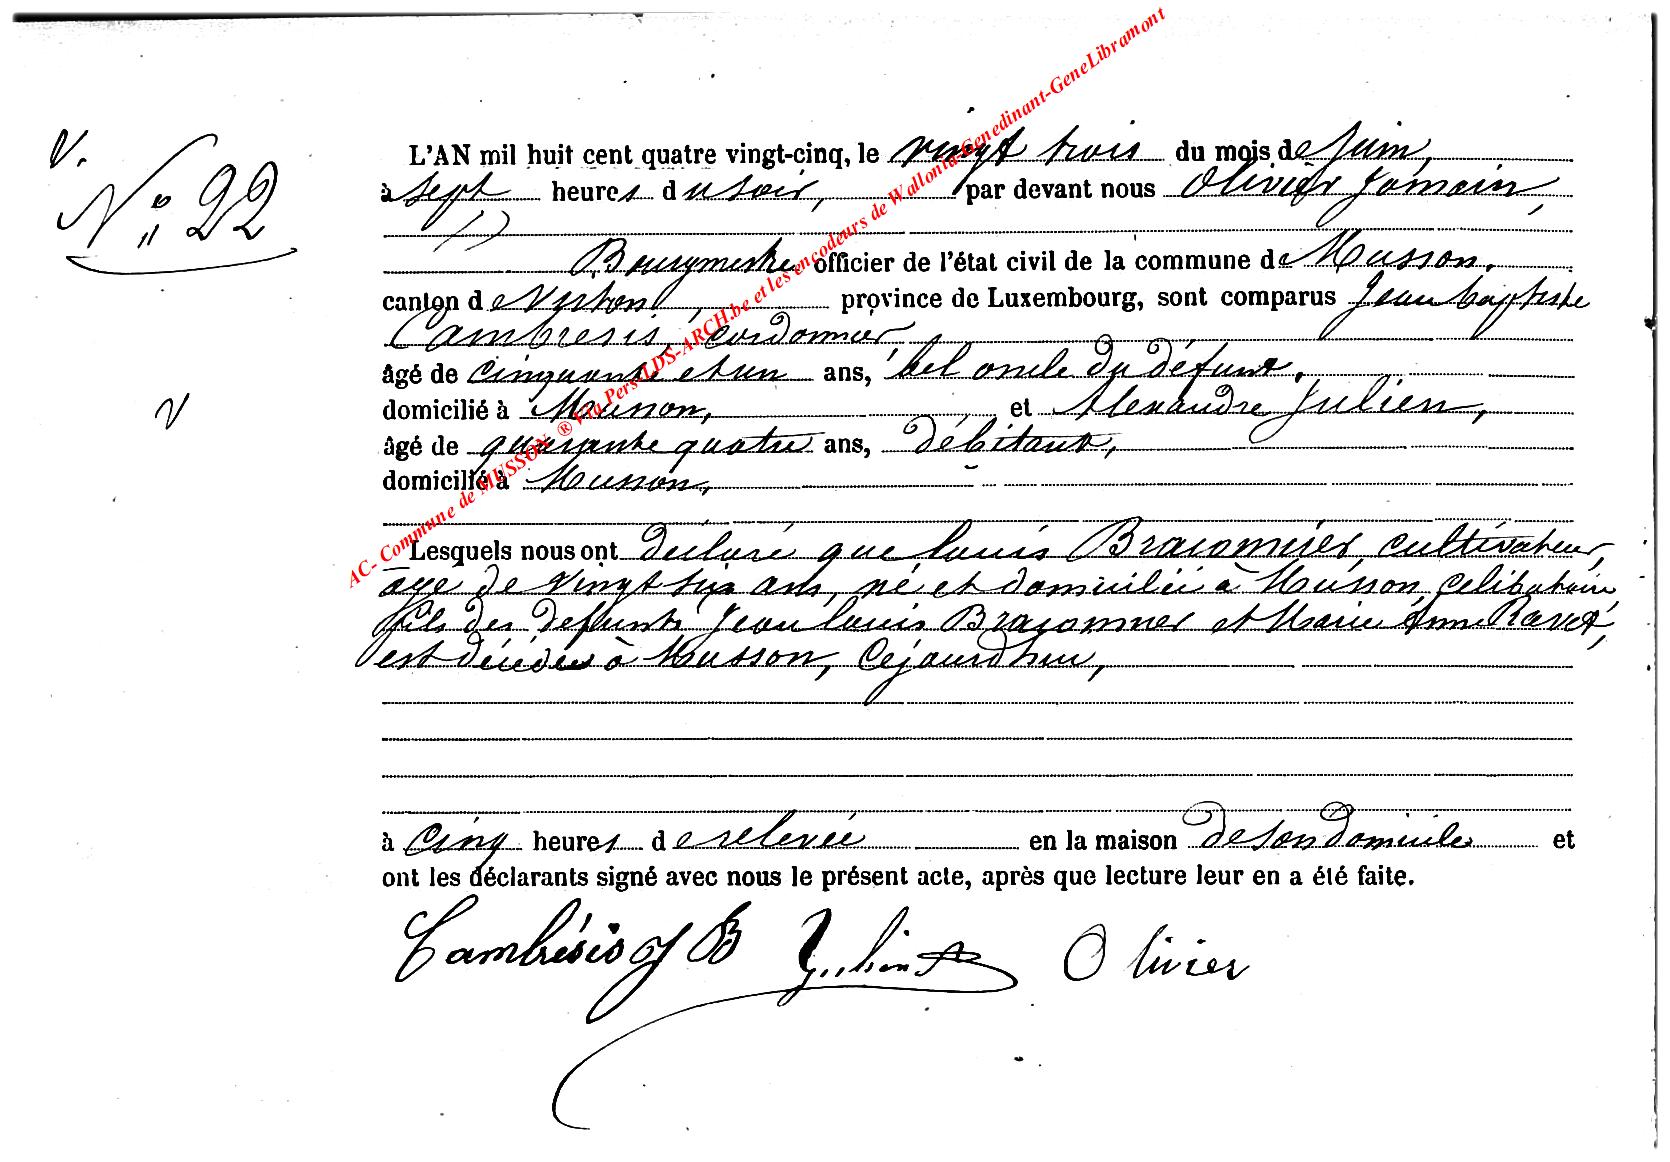 V.
N° 22
L'AN mil huit cent quatre vingt-cinq, le vingt trois du mois de Juin,
à sept heures du soir, par devant nous Olivier Jamain,
Bourgmestre officier de l'état civil de la commune de Musson.
canton de Virton, province de Luxembourg, sont comparus Jean baptiste
Cambresis, cordonnier,
âgé de cinquante et un ans, bel oncle du défunt,
domicilié à Musson, et Alexandre Julien,
âgé de quarante quatre ans, débitant,
domicilié à Musson,
Lesquels nous ont déclaré que louis Braconnier, cultivateur,
âgé de vingt six ans, né et domicilié à Musson, celibataire
fils des défunts Jean louis Braconnier et Marie Anne Ravet,
est décédé à Musson, cejourd'hui,
à cinq heures de relevée en la maison de son domicile et
ont les déclarants signé avec nous le présent acte, après que lecture leur en a été faite.
Cambrésis J B Julien A Olivier
AC- Commune de MUSSON ® Via Pers-LDS-ARCH.be et les encodeurs de Wallonia-Genedinant-GeneLibramont
V